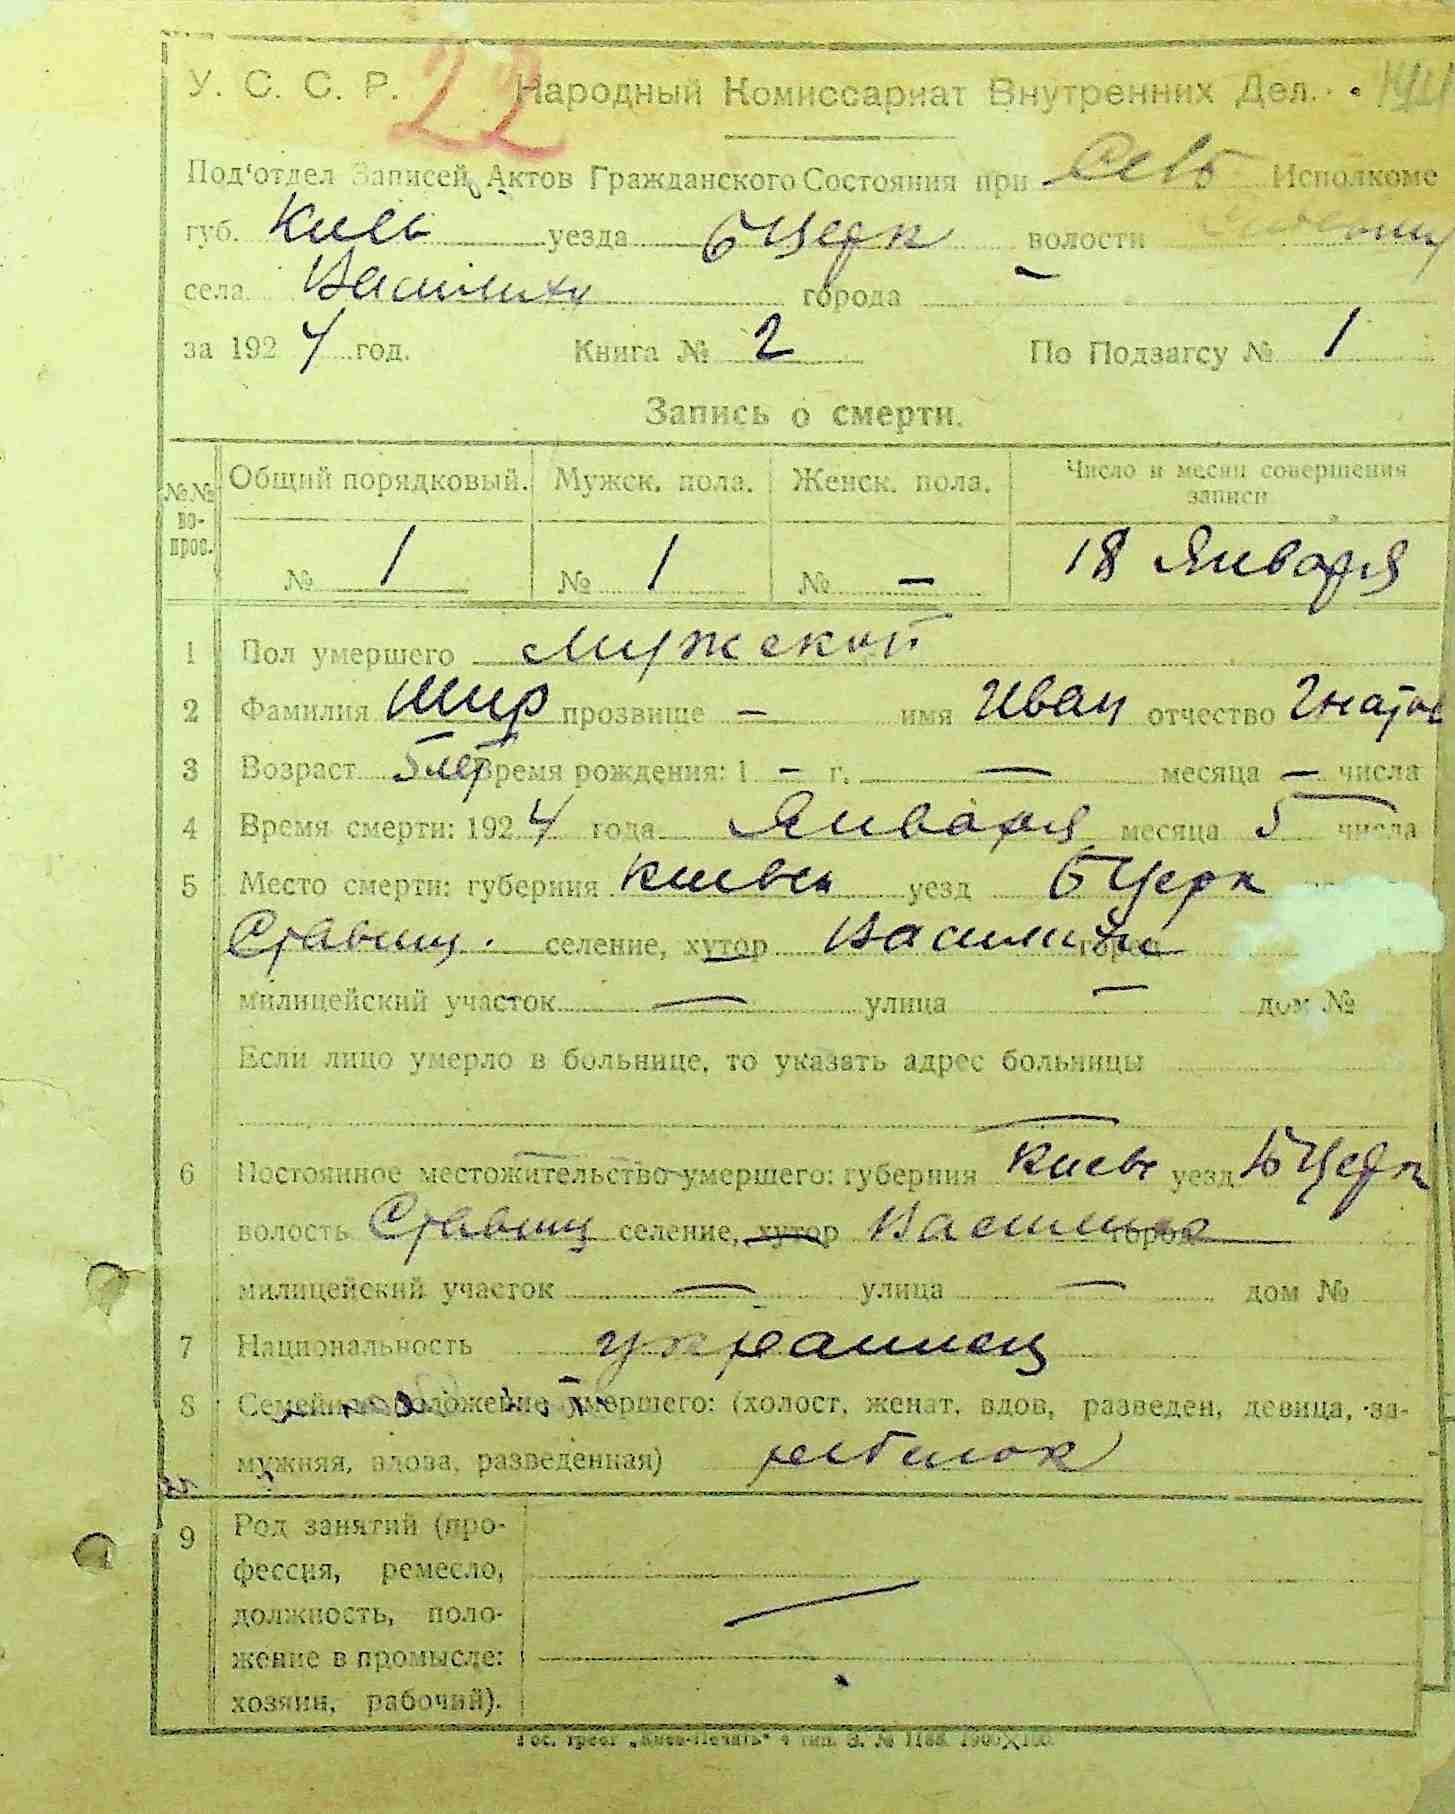 22
У. С. С. Р. Народный Комиссариат Внутренних Дел.
Под'отдел Записей Актов Гражданского Состояния при Исполкоме
губ. Киев уезда БЦерк волости
села Василиха города —
за 1924 год. Книга № 2 По Подзагсу № 1
Запись о смерти.
№№ вопрос. Общий порядковый. Мужск. пола. Женск. пола. Число и месяц совершения записи
№ 1 № 1 № — 18 Января
1 Пол умершего Мужской
2 Фамилия Шир прозвище — имя Иван отчество Игнатов
3 Возраст 5 лет Время рождения: 1 — г. — месяца — числа
4 Время смерти: 1924 года Января месяца 5 числа
5 Место смерти: губерния Киевск уезд БЦерк
Ставищ. селение, хутор Василиха город
милицейский участок — улица — дом №
Если лицо умерло в больнице, то указать адрес больницы
—
6 Постоянное местожительство умершего: губерния Киевс уезд БЦерк
волость Ставищ селение, хутор Василиха город
милицейский участок — улица — дом №
7 Национальность украинец
8 Семейное положение умершего: (холост, женат, вдов, разведен, девица, за-
мужняя, вдова, разведенная) ребенок
9 Род занятий (про-
фессия, ремесло,
должность, поло- —
жение в промысле:
хозяин, рабочий).
Гос. трест „Киев-Печать"